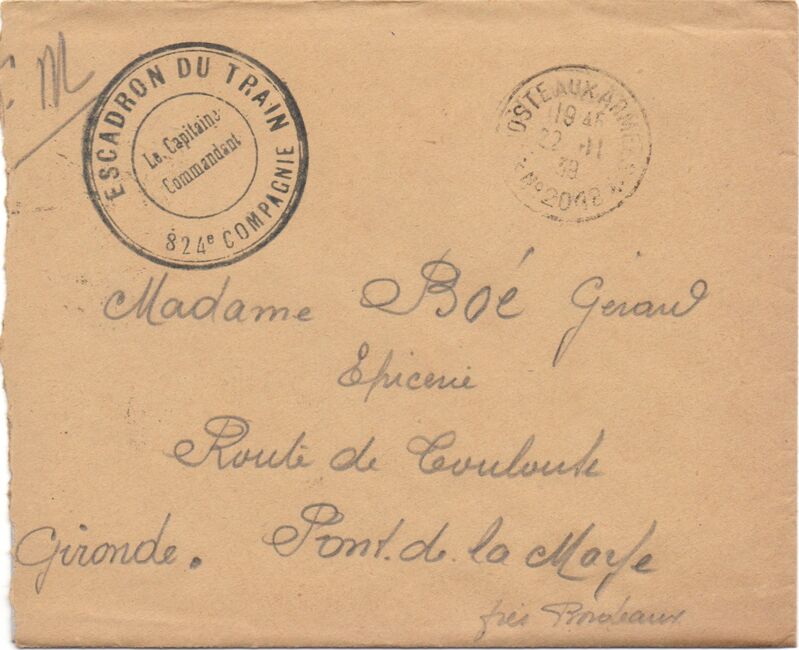 F M
ESCADRON DU TRAIN
Le Capitaine
Commandant
824e COMPAGNIE
POSTE AUX ARMEES
19 45
22 -11
39
* No 2048 *
Madame Boé Gérard
Epicerie
Route de Toulouse
Gironde. Pont. de la Maye
près Bordeaux